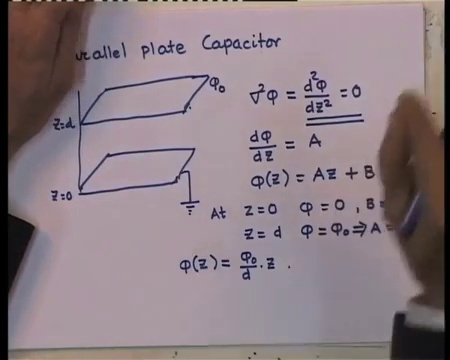 Parallel plate Capacitor
φ₀
∇²φ = d²φ/dz² = 0
z=d
dφ/dz = A
φ(z) = Az + B
z=0
At z=0 φ=0, B=
z=d φ=φ₀ ⇒ A=
φ(z) = φ₀/d · z .